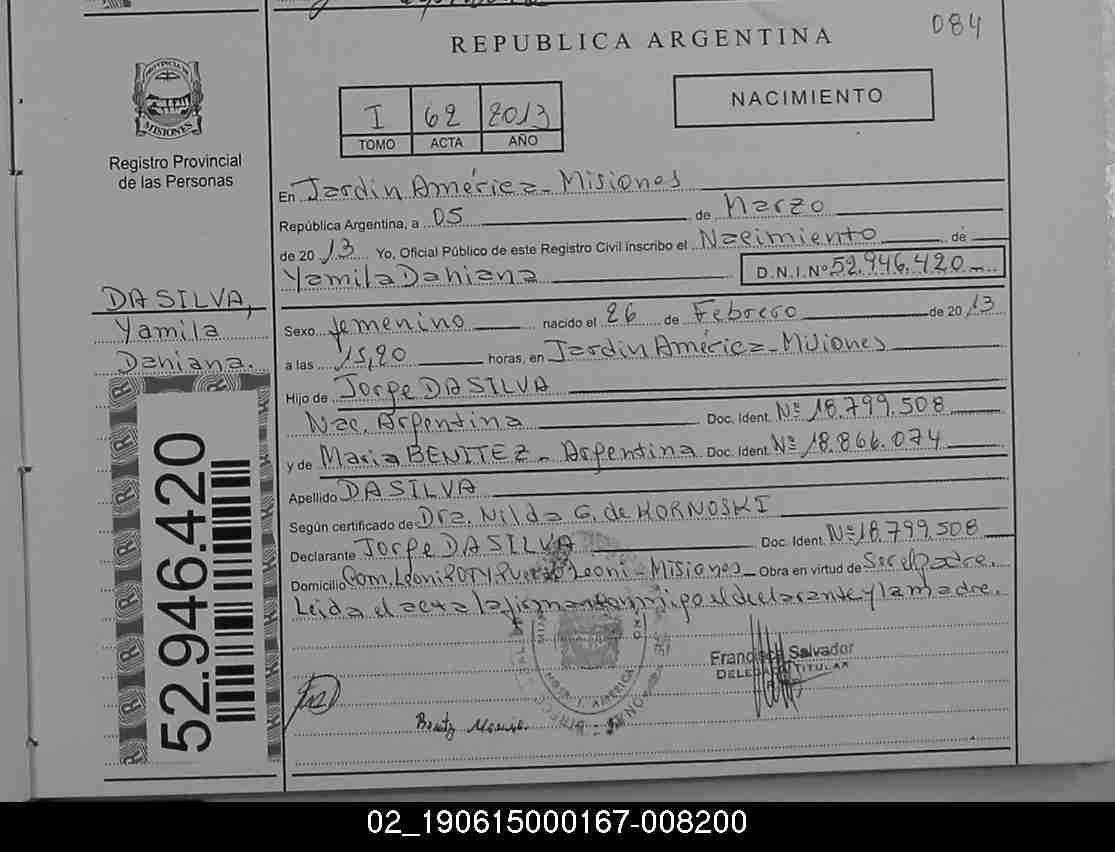 084
REPUBLICA ARGENTINA
NACIMIENTO
I 62 2013
TOMO ACTA AÑO
MISIONES
Registro Provincial
de las Personas
En Jardín América - Misiones
República Argentina, a 05 de Marzo
de 2013 Yo. Oficial Público de este Registro Civil inscribo el Nacimiento de
Yamila Dahiana D.N.I.Nº 52.946.420
DA SILVA,
Yamila
Dahiana.
Sexo femenino nacido el 26 de Febrero de 2013
a las 15,20 horas, en Jardín América - Misiones
Hijo de Jorge DA SILVA
Nac. Argentina Doc. Ident. Nº 18.799.508
y de Maria BENITEZ - Argentina Doc. Ident. Nº 18.866.074
Apellido DA SILVA
Según certificado de Dra. Nilda G. de KORNOSKI
Declarante Jorge DA SILVA Doc. Ident. Nº 18.799.508
Domicilio Com. Leoni POTY, Puerto Leoni - Misiones Obra en virtud de Ser el padre.
Leída el acta la firman conmigo el declarante y la madre.
52.946.420
Francisca Salvador
TITULAR
Benitz Maria
02_190615000167-008200